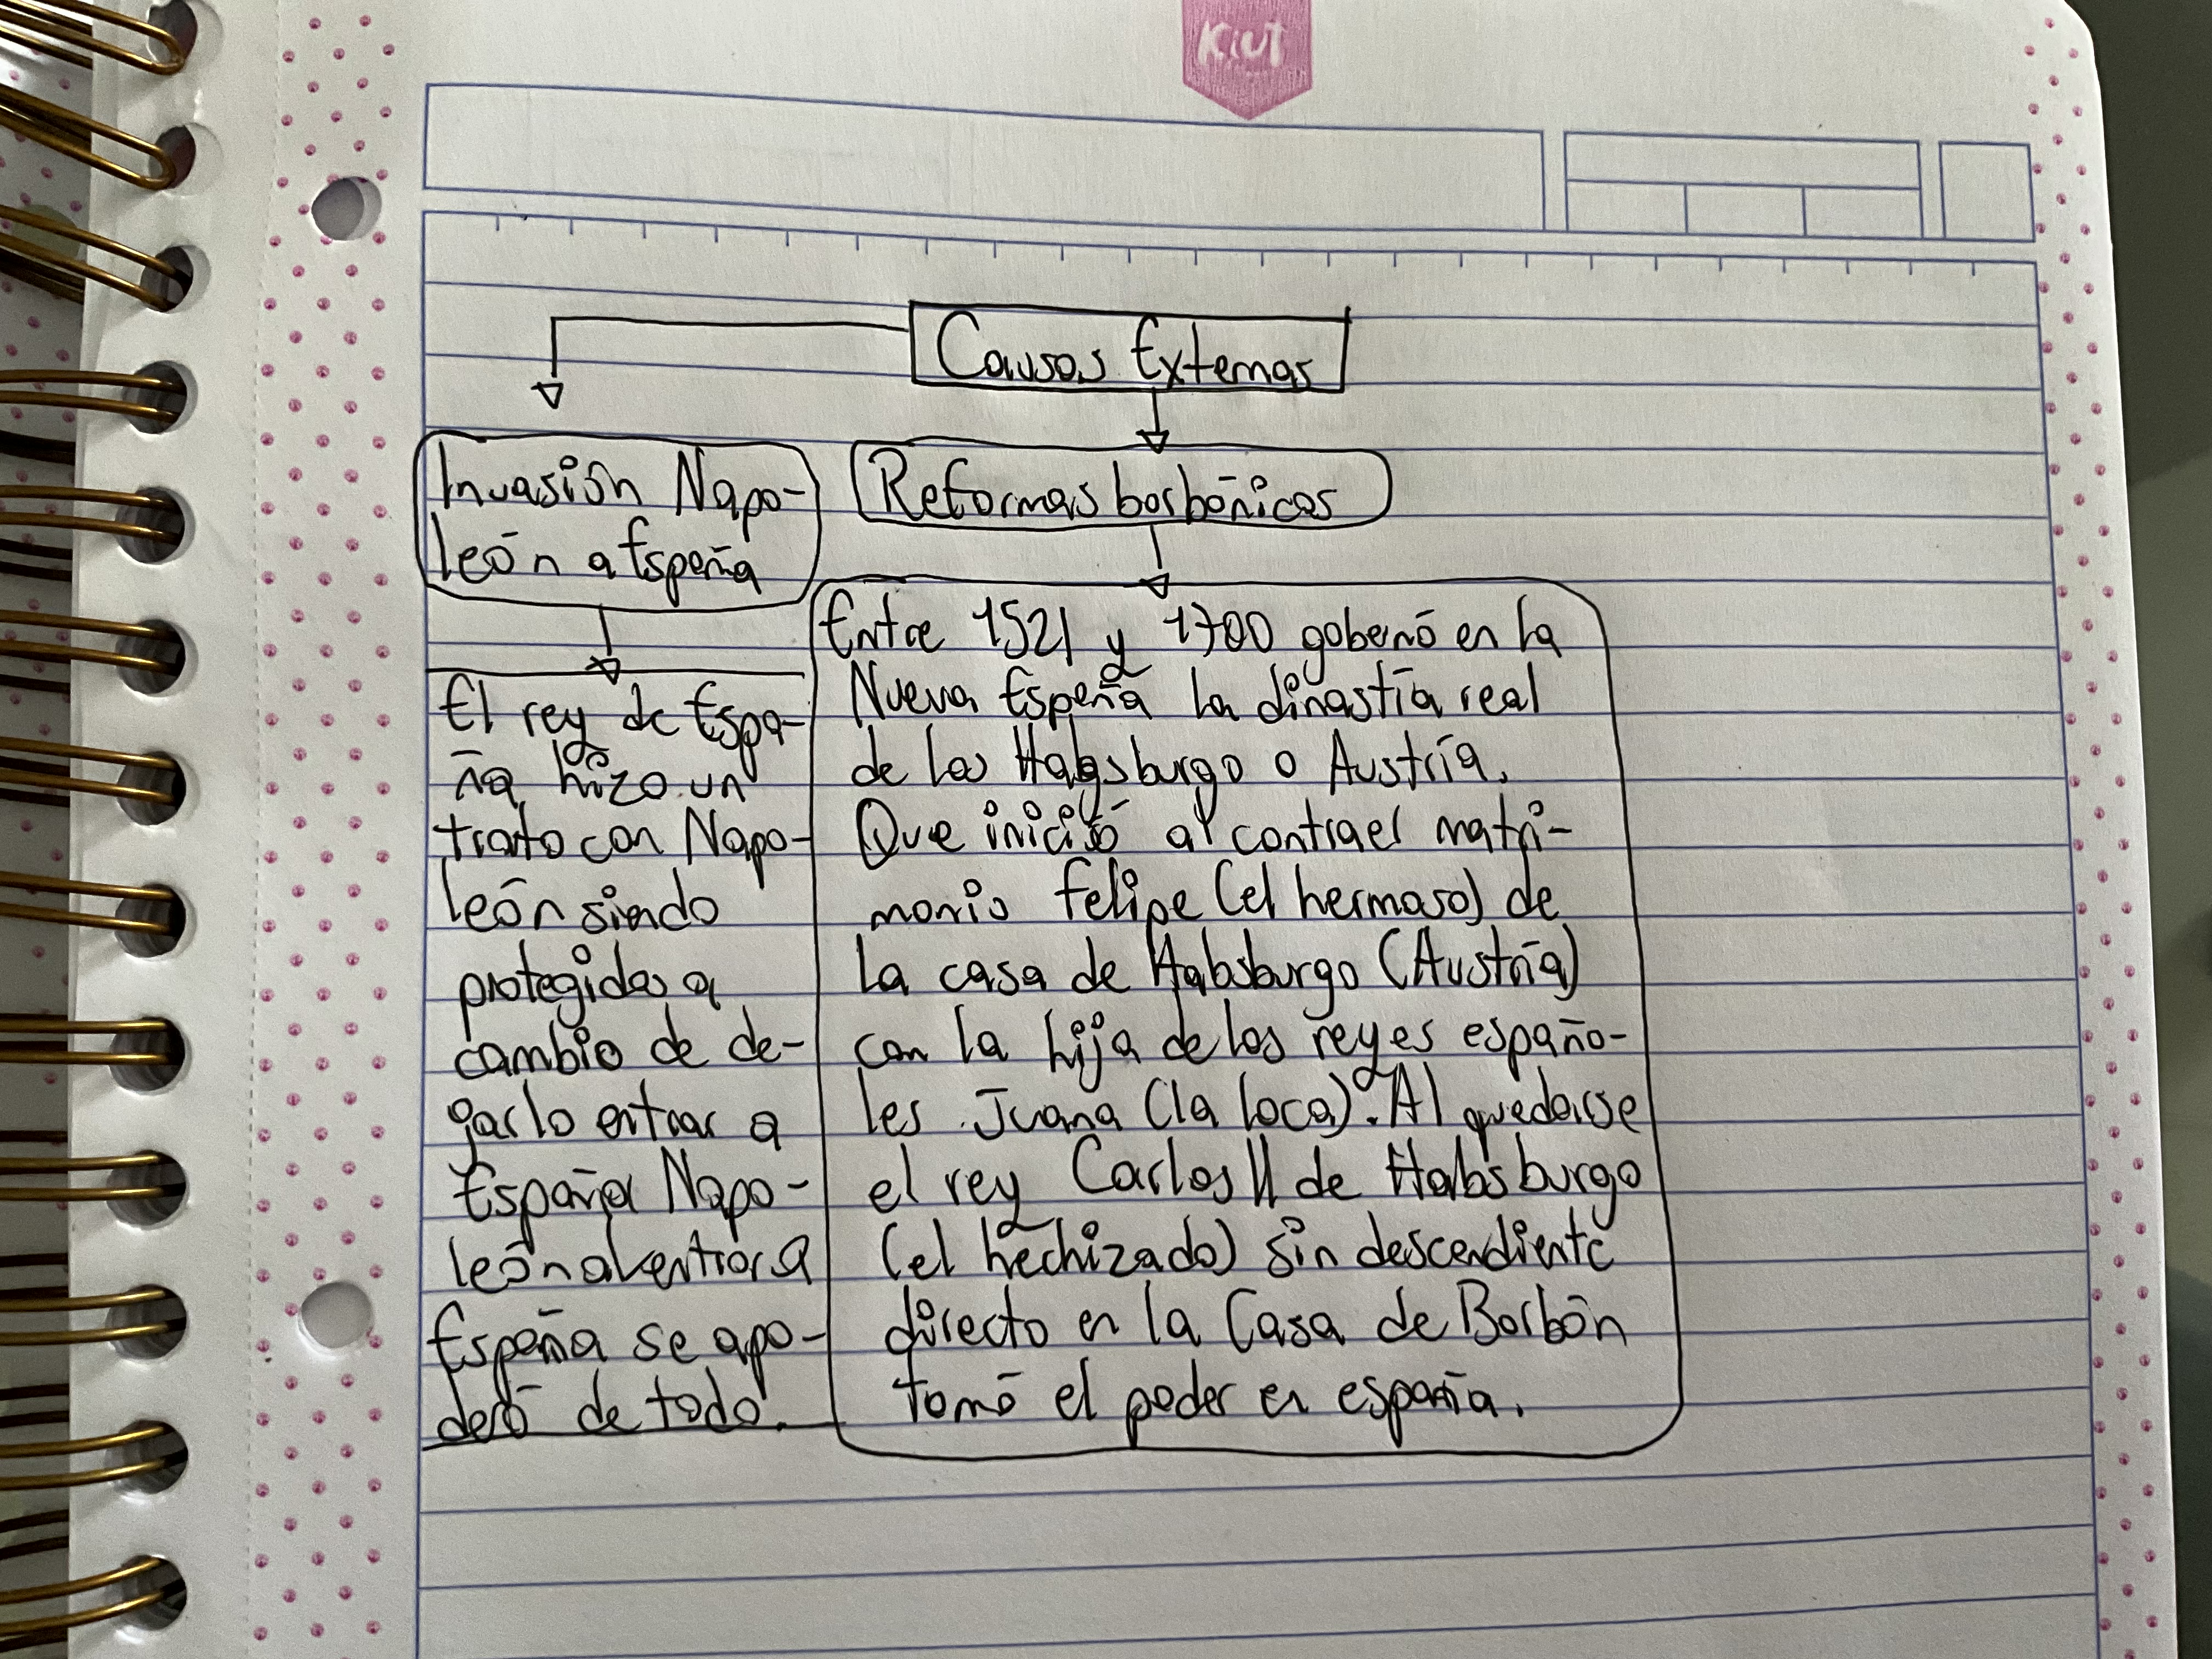 Kiut
Causas Externas
Invasión Napo-
león a España
El rey de Espa-
ña hizo un
trato con Napo-
león siendo
protegidos a
cambio de de-
jarlo entrar a
España Napo-
león al entrar a
España se apo-
deró de todo.
Reformas borbónicas
Entre 1521 y 1700 gobernó en la
Nueva España la dinastía real
de los Habgsburgo o Austría.
Que inició al contraer matri-
monio Felipe (el hermoso) de
la casa de Habsburgo (Austría)
con la hija de los reyes españo-
les Juana (la loca). Al quedarse
el rey Carlos II de Habsburgo
(el hechizado) sin descendiente
directo en la Casa de Borbón
tomó el poder en españa.